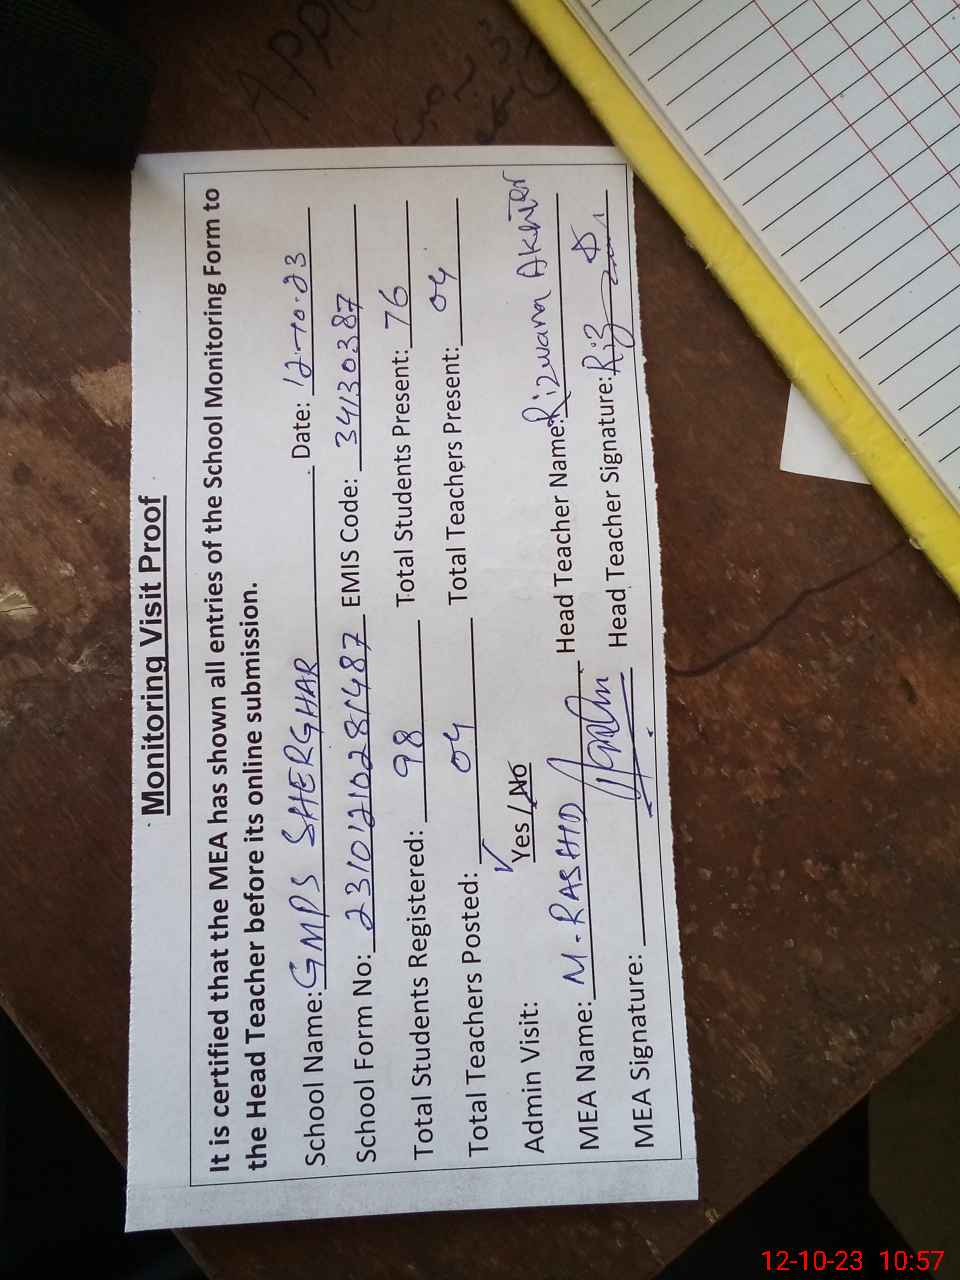 Monitoring Visit Proof
It is certified that the MEA has shown all entries of the School Monitoring Form to
the Head Teacher before its online submission.
School Name: GMPS SHERGHAR Date: 12-10-23
School Form No: 23101210281487 EMIS Code: 34130387
Total Students Registered: 98 Total Students Present: 76
Total Teachers Posted: 04 Total Teachers Present: 04
Admin Visit: Yes / No
MEA Name: M. RASHID Head Teacher Name: Rizwana Akhter
MEA Signature: Head Teacher Signature: Riz
12-10-23 10:57